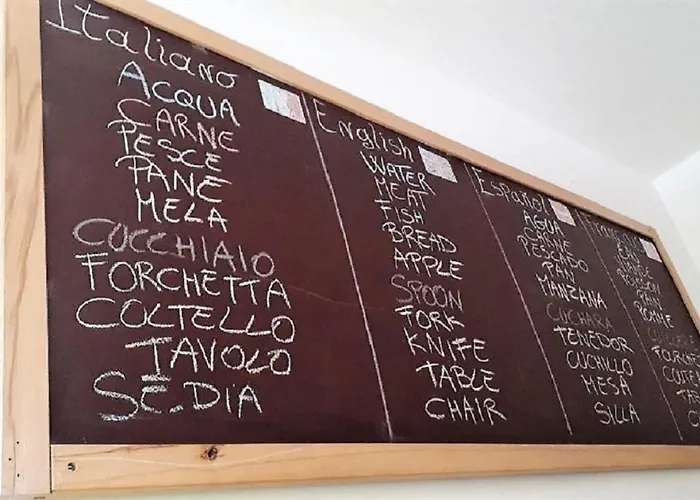 Italiano
ACQUA
CARNE
PESCE
PANE
MELA
CUCCHIAIO
FORCHETTA
COLTELLO
TAVOLO
SEDIA
English
WATER
MEAT
FISH
BREAD
APPLE
SPOON
FORK
KNIFE
TABLE
CHAIR
Español
AGUA
CARNE
PESCADO
PAN
MANZANA
CUCHARA
TENEDOR
CUCHILLO
MESA
SILLA
EAU
VIANDE
POISSON
PAIN
POMME